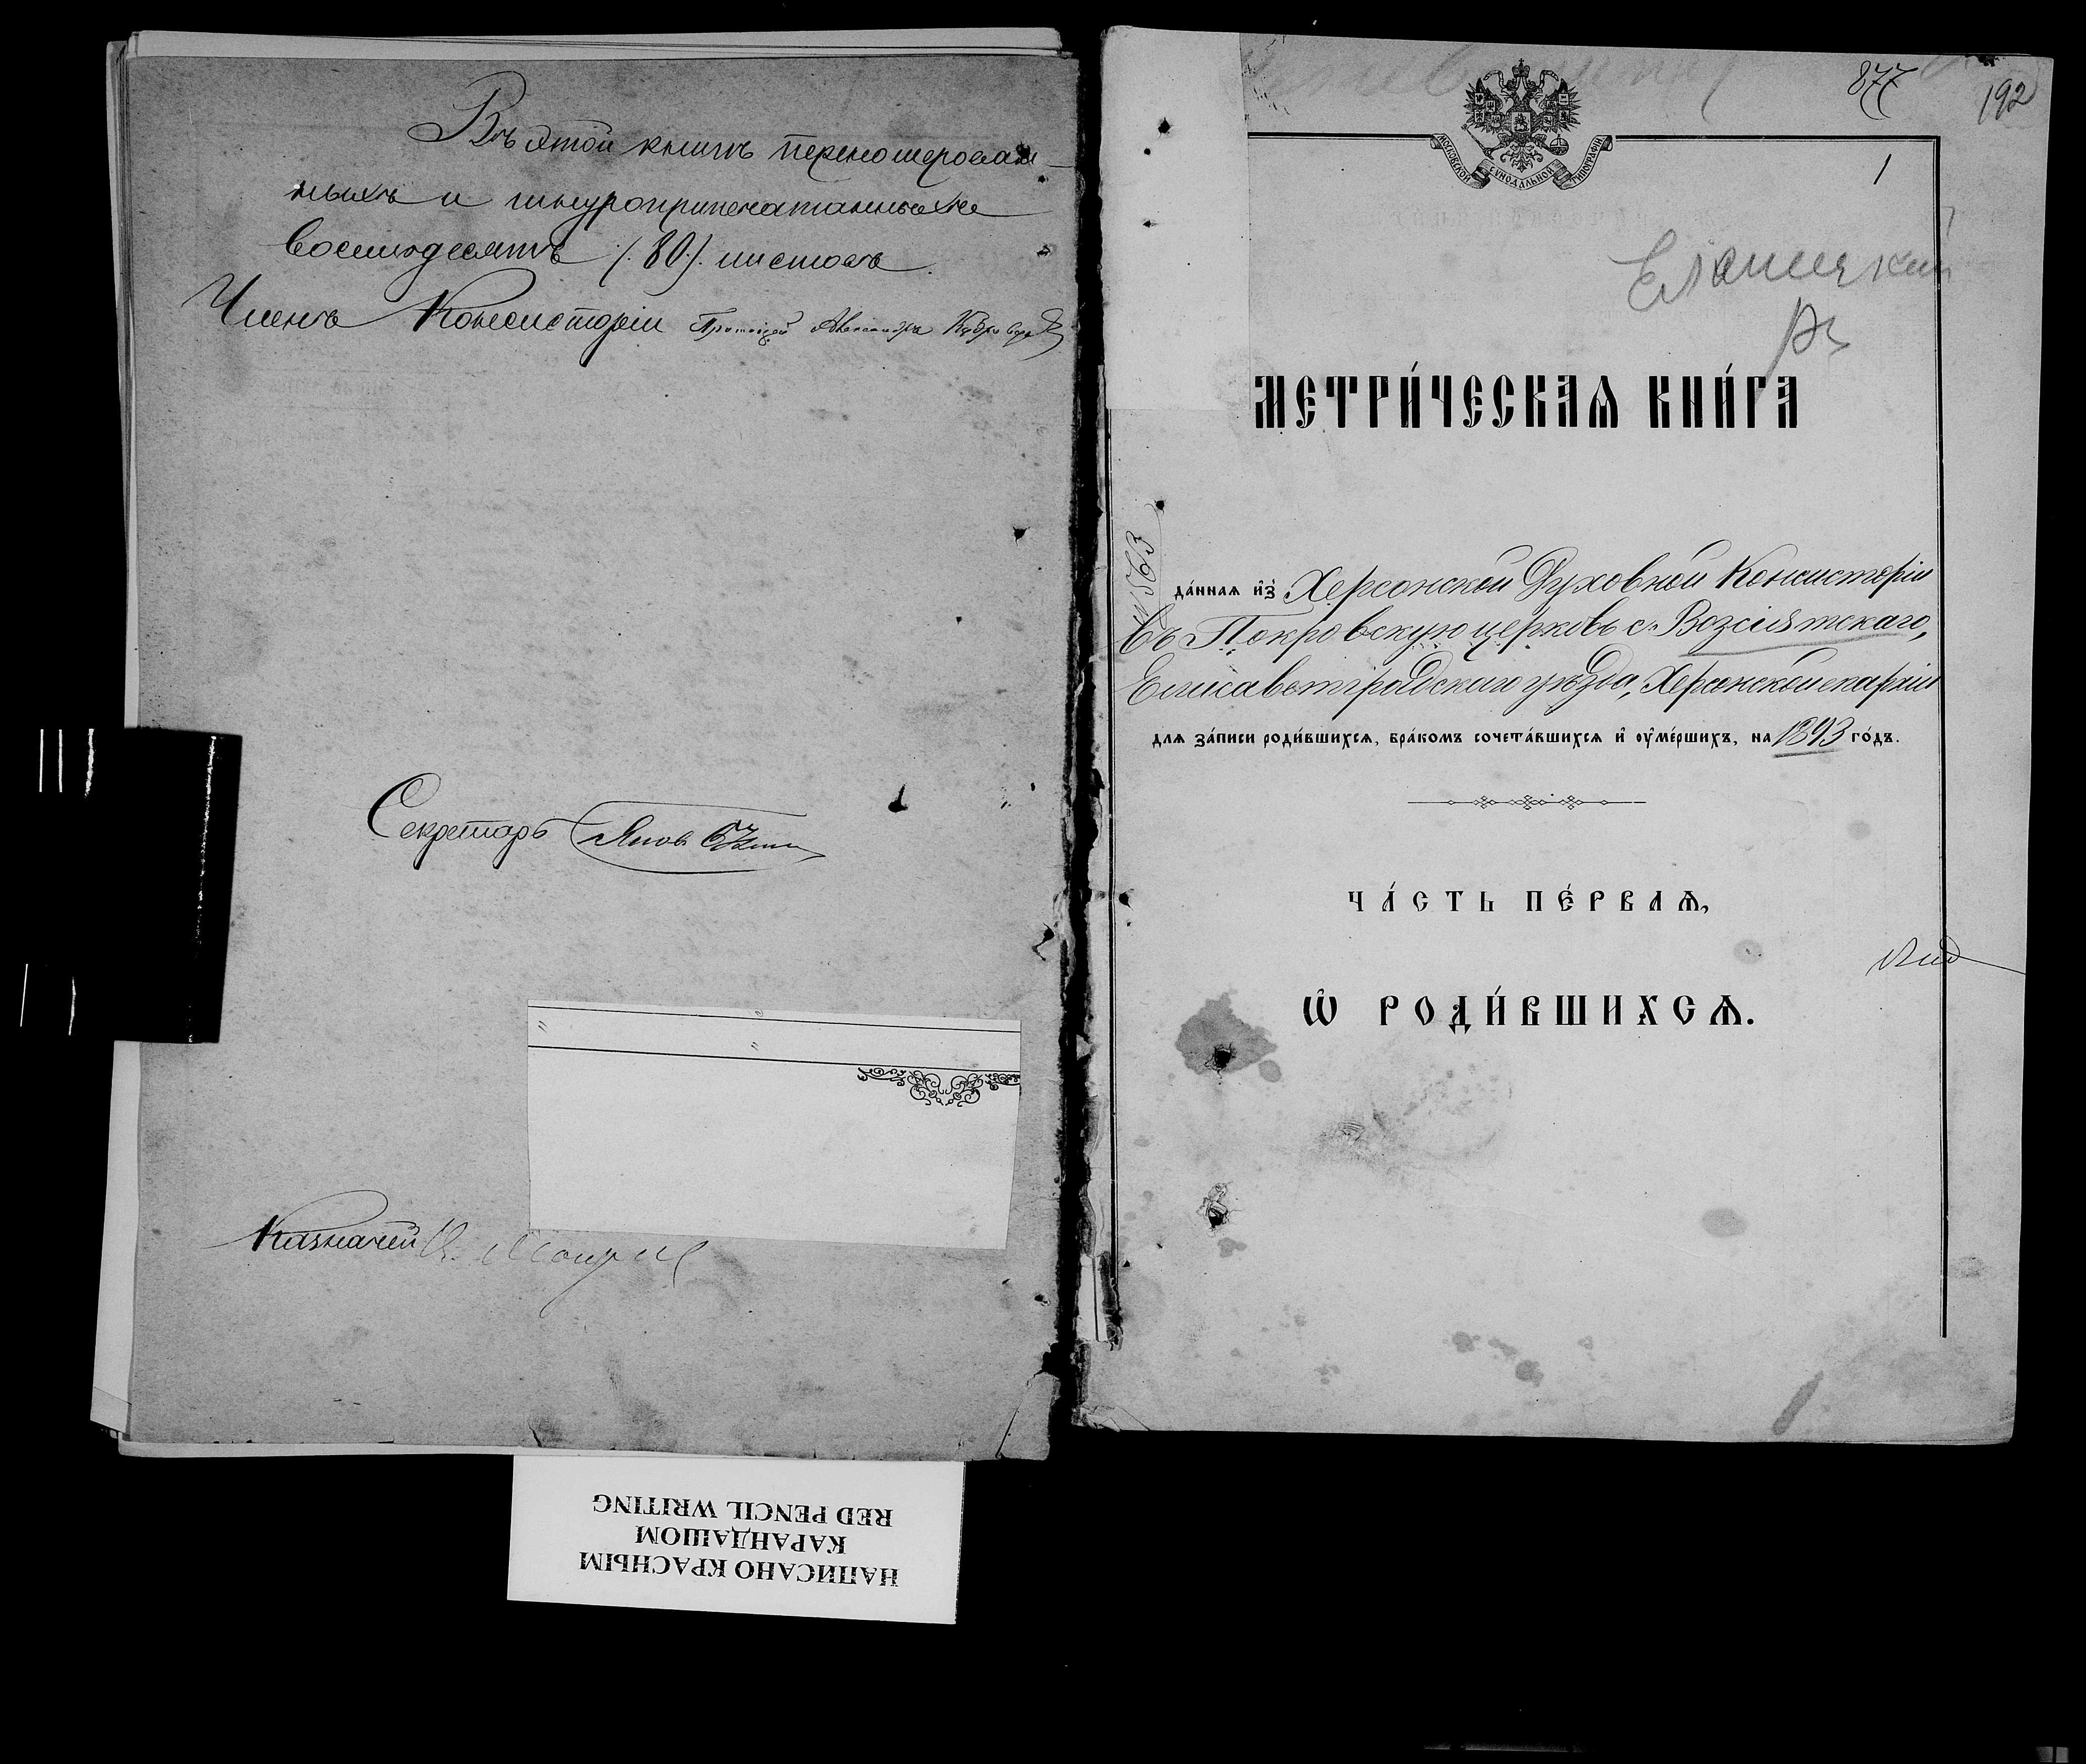 Въ этой книгѣ перенумерован-
ныхъ и шнуроприпечатанныхъ
восемьдесятъ (80) листовъ.
Членъ Консисторіи Протоіерей Александръ
Секретарь
Казначей
НАПИСАНО КРАСНЫМ
КАРАНДАШОМ
RED PENCIL WRITING
877
192
МОСКОВСКОЙ СѴНОДАЛЬНОЙ ТИПОГРАФІИ
1
Еланецкий
МЕТРИ́ЧЕСКАѦ КНИ́ГА
№ 563
да́нная и҆з̾ Херсонской Духовной Консисторіи
въ Покровскую церковь с. Возсіятскаго,
Елисаветградскаго уѣзда, Херсонской епархіи
для за́писи роди́вшихся, бра́комъ сочета́вшихся и҆ ѹ҆ме́ршихъ, на 1893 го́дъ.
ЧА́СТЬ ПЕ́РВАѦ,
Ѡ҆ РОДИ́ВШИХСѦ.